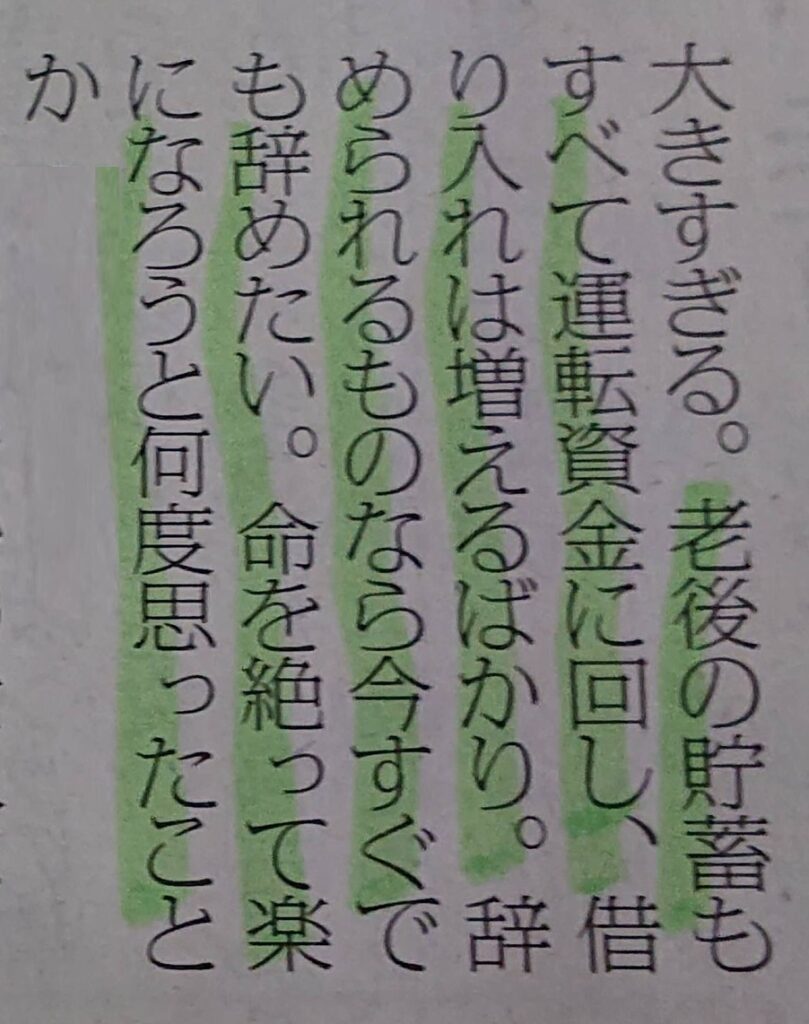 大きすぎる。老後の貯蓄も
すべて運転資金に回し、借
り入れは増えるばかり。辞
められるものなら今すぐで
も辞めたい。命を絶って楽
になろうと何度思ったこと
か